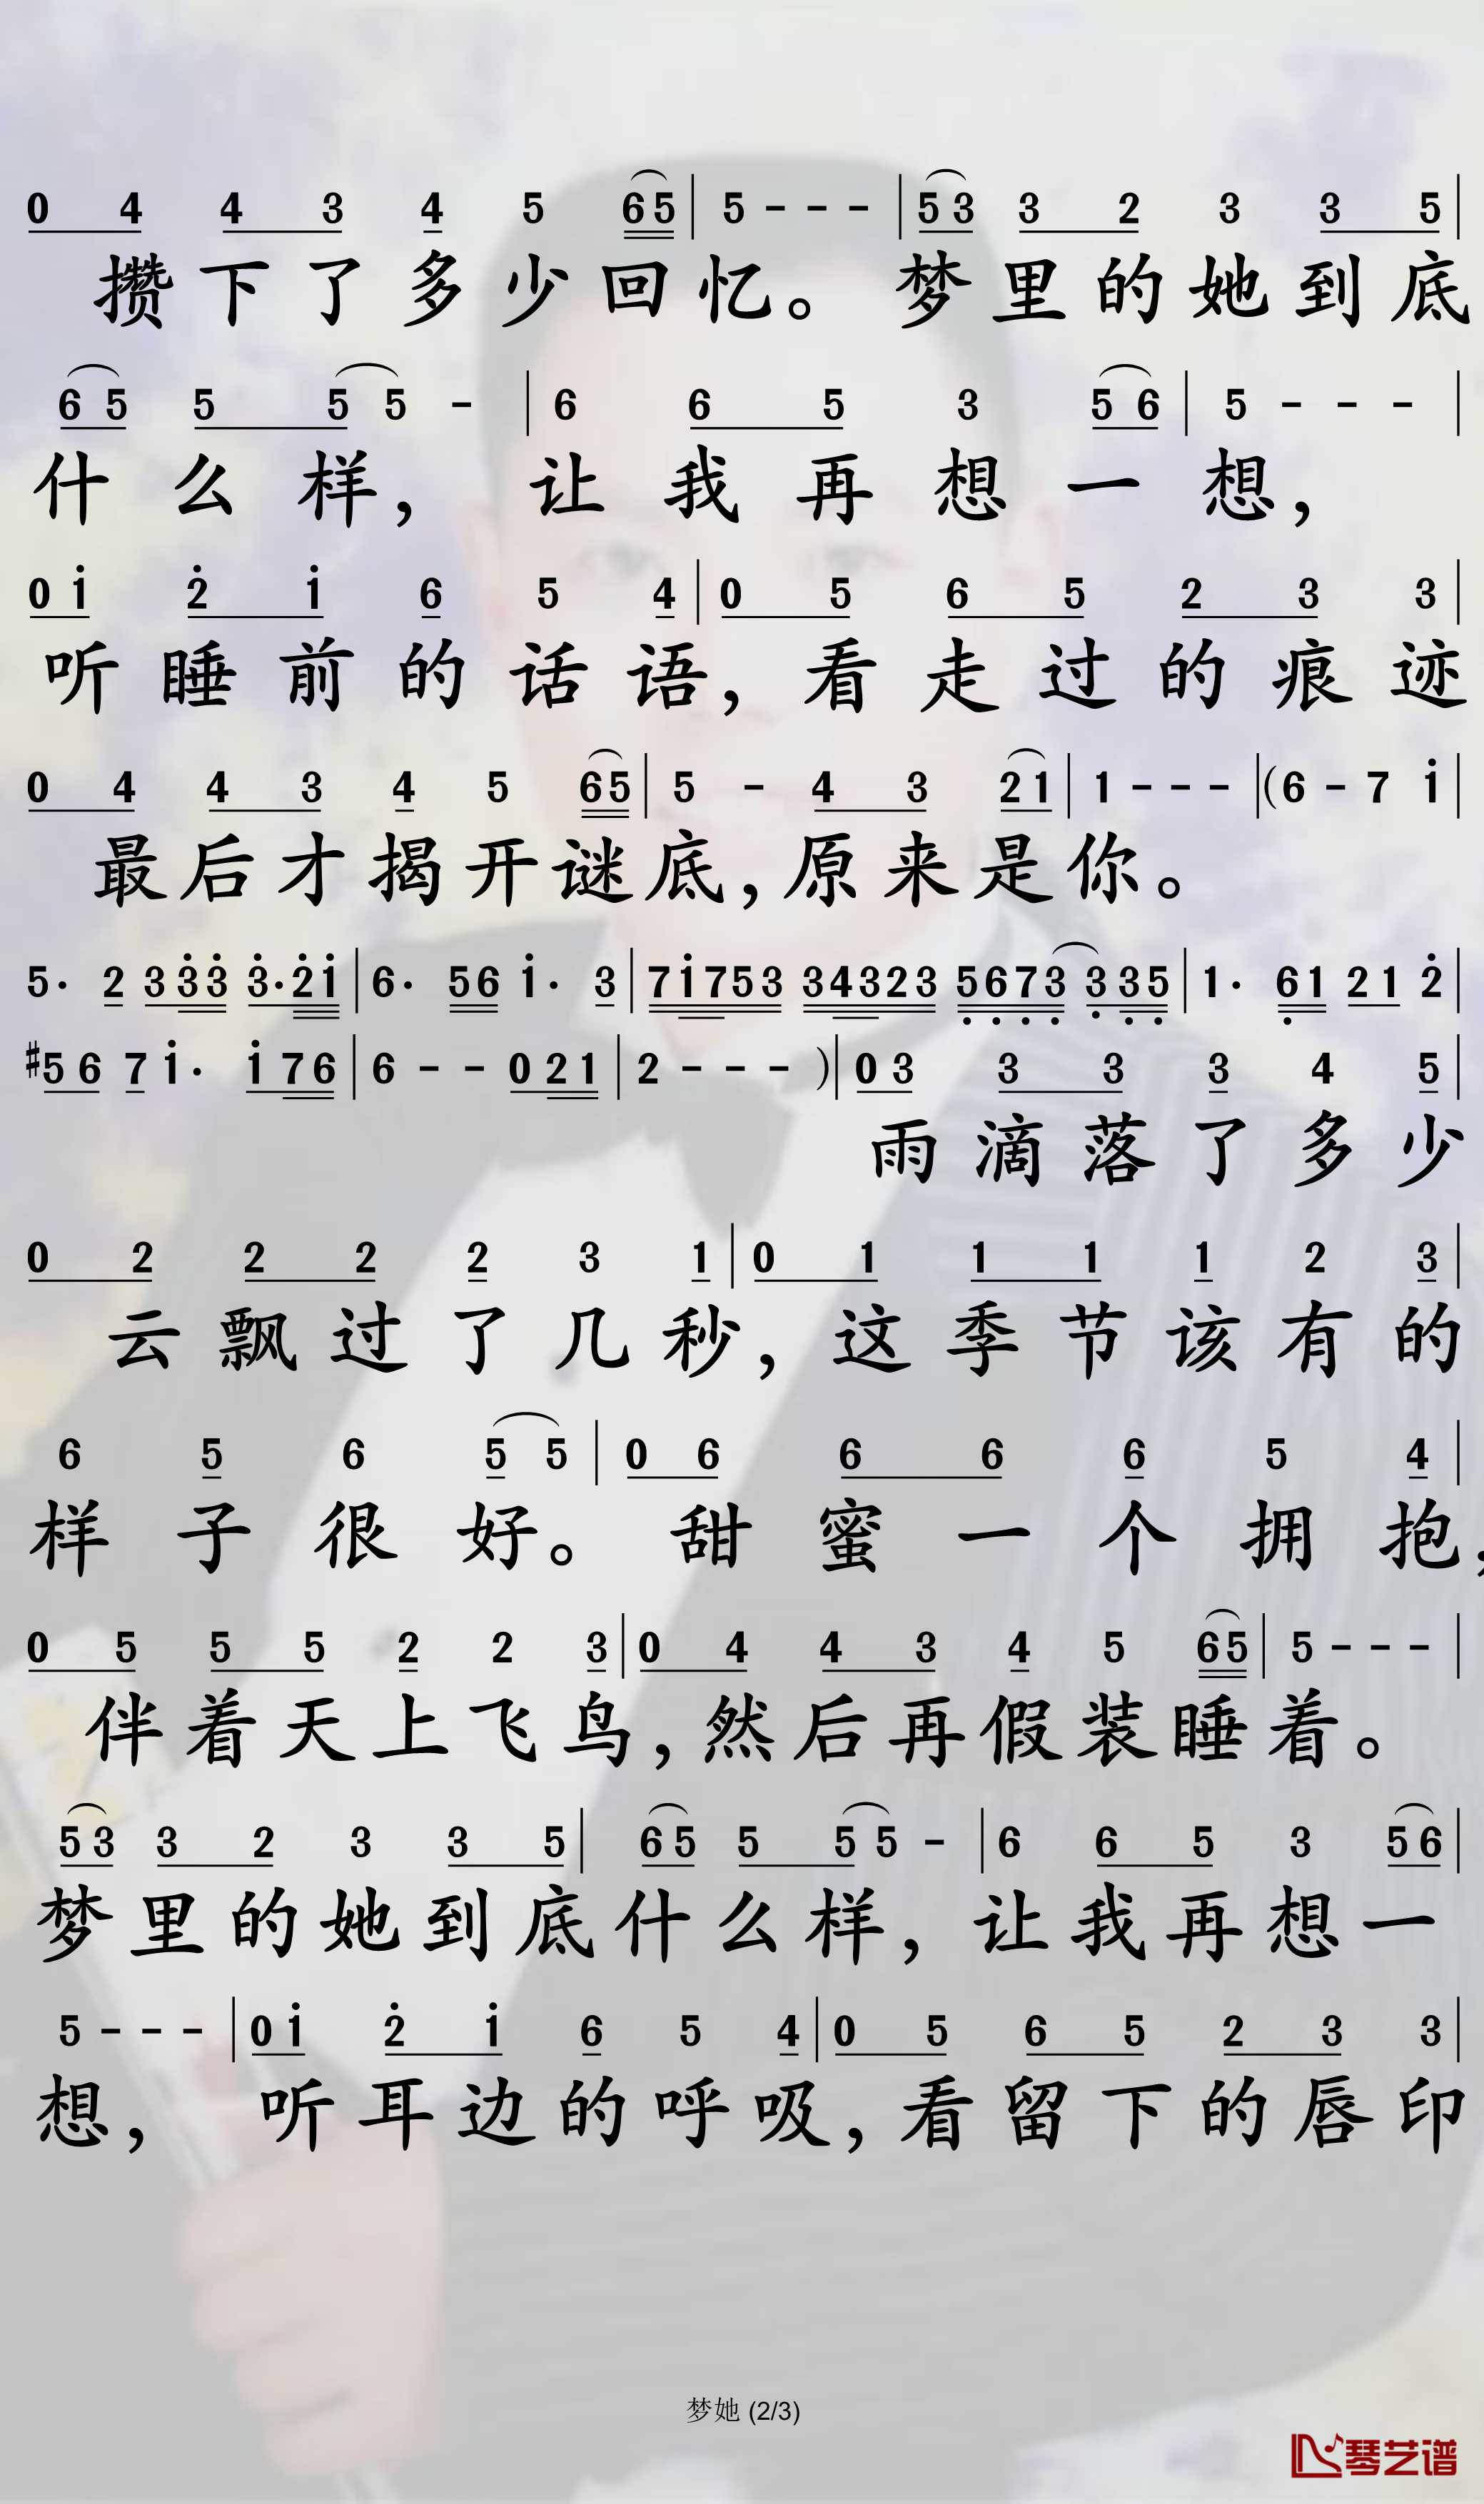 0 4 4 3 4 5 65 | 5 - - - | 53 3 2 3 3 5 |
攒下了多少回忆。梦里的她到底
65 5 5 5 - | 6 6 5 3 56 | 5 - - - |
什么样，让我再想一想，
0 i 2̇ i 6 5 4 | 0 5 6 5 2 3 3 |
听睡前的话语，看走过的痕迹
0 4 4 3 4 5 65 | 5 - 4 3 21 | 1 - - - | (6 - 7 i |
最后才揭开谜底，原来是你。
5· 2 33̇3̇ 3̇·2̇i | 6· 56 i· 3 | 7i753 34323 5̣6̣7̣3̣ 3̣3̣5̣ | 1· 6̣1 21 2̇ |
#56 7 i· i76 | 6 - - 021 | 2 - - - ) | 03 3 3 3 4 5 |
雨滴落了多少
0 2 2 2 2 3 1 | 0 1 1 1 1 2 3 |
云飘过了几秒，这季节该有的
6 5 6 5 5 | 0 6 6 6 6 5 4 |
样子很好。甜蜜一个拥抱，
0 5 5 5 2 2 3 | 0 4 4 3 4 5 65 | 5 - - - |
伴着天上飞鸟，然后再假装睡着。
53 3 2 3 3 5 | 65 5 5 5 - | 6 6 5 3 56 |
梦里的她到底什么样，让我再想一
5 - - - | 0 i 2̇ i 6 5 4 | 0 5 6 5 2 3 3 |
想，听耳边的呼吸，看留下的唇印
梦她 (2/3)
琴艺谱